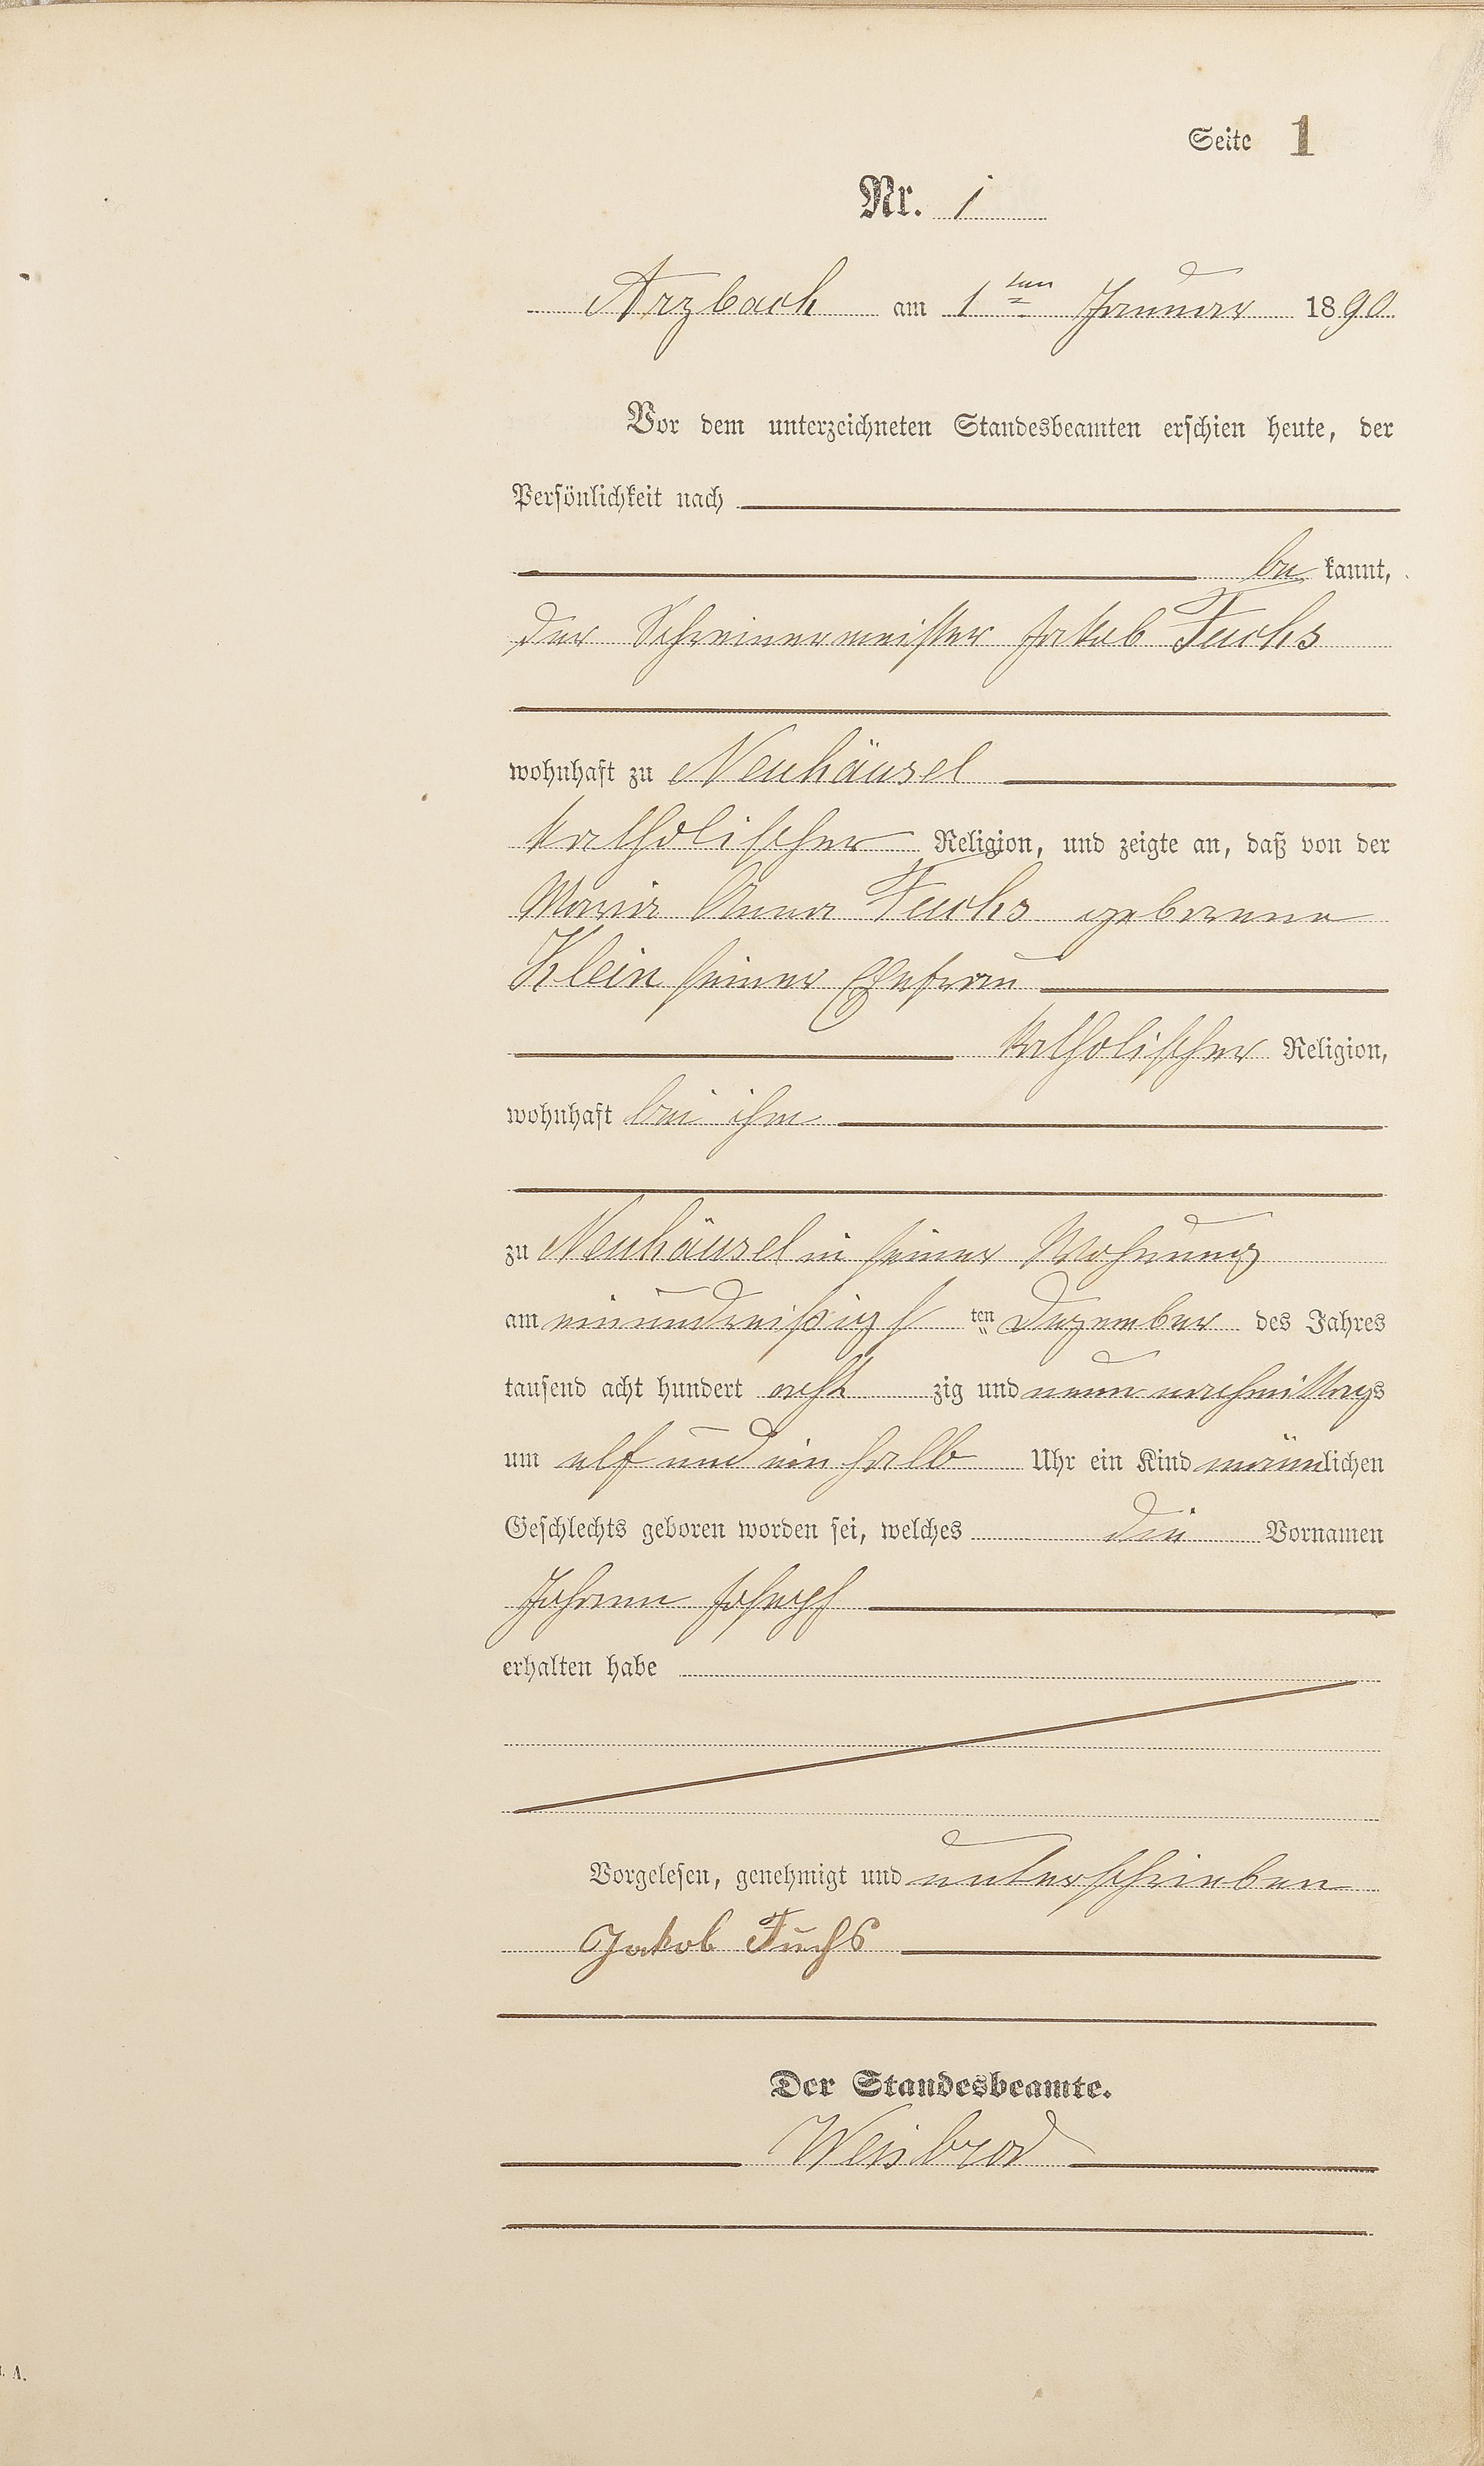 Seite 1
Nr. 1
Arzbach am 1ten Januar 1890
Vor dem unterzeichneten Standesbeamten erschien heute, der
Persönlichkeit nach
bekannt,
der Schreinermeister Jakob Fuchs
wohnhaft zu Neuhäusel
katholischer Religion, und zeigte an, daß von der
Maria Anna Fuchs geborenen
Klein seiner Ehefrau
katholischer Religion,
wohnhaft bei ihm
zu Neuhäusel in seiner Wohnung
am einunddreißigsten Dezember des Jahres
tausend acht hundert achtzig und neun nachmittags
um elf und ein halb Uhr ein Kind männlichen
Geschlechts geboren worden sei, welches die Vornamen
Johann Joseph
erhalten habe
Vorgelesen, genehmigt und unterschrieben
Jakob Fuchs
Der Standesbeamte.
Weisbrod
A.